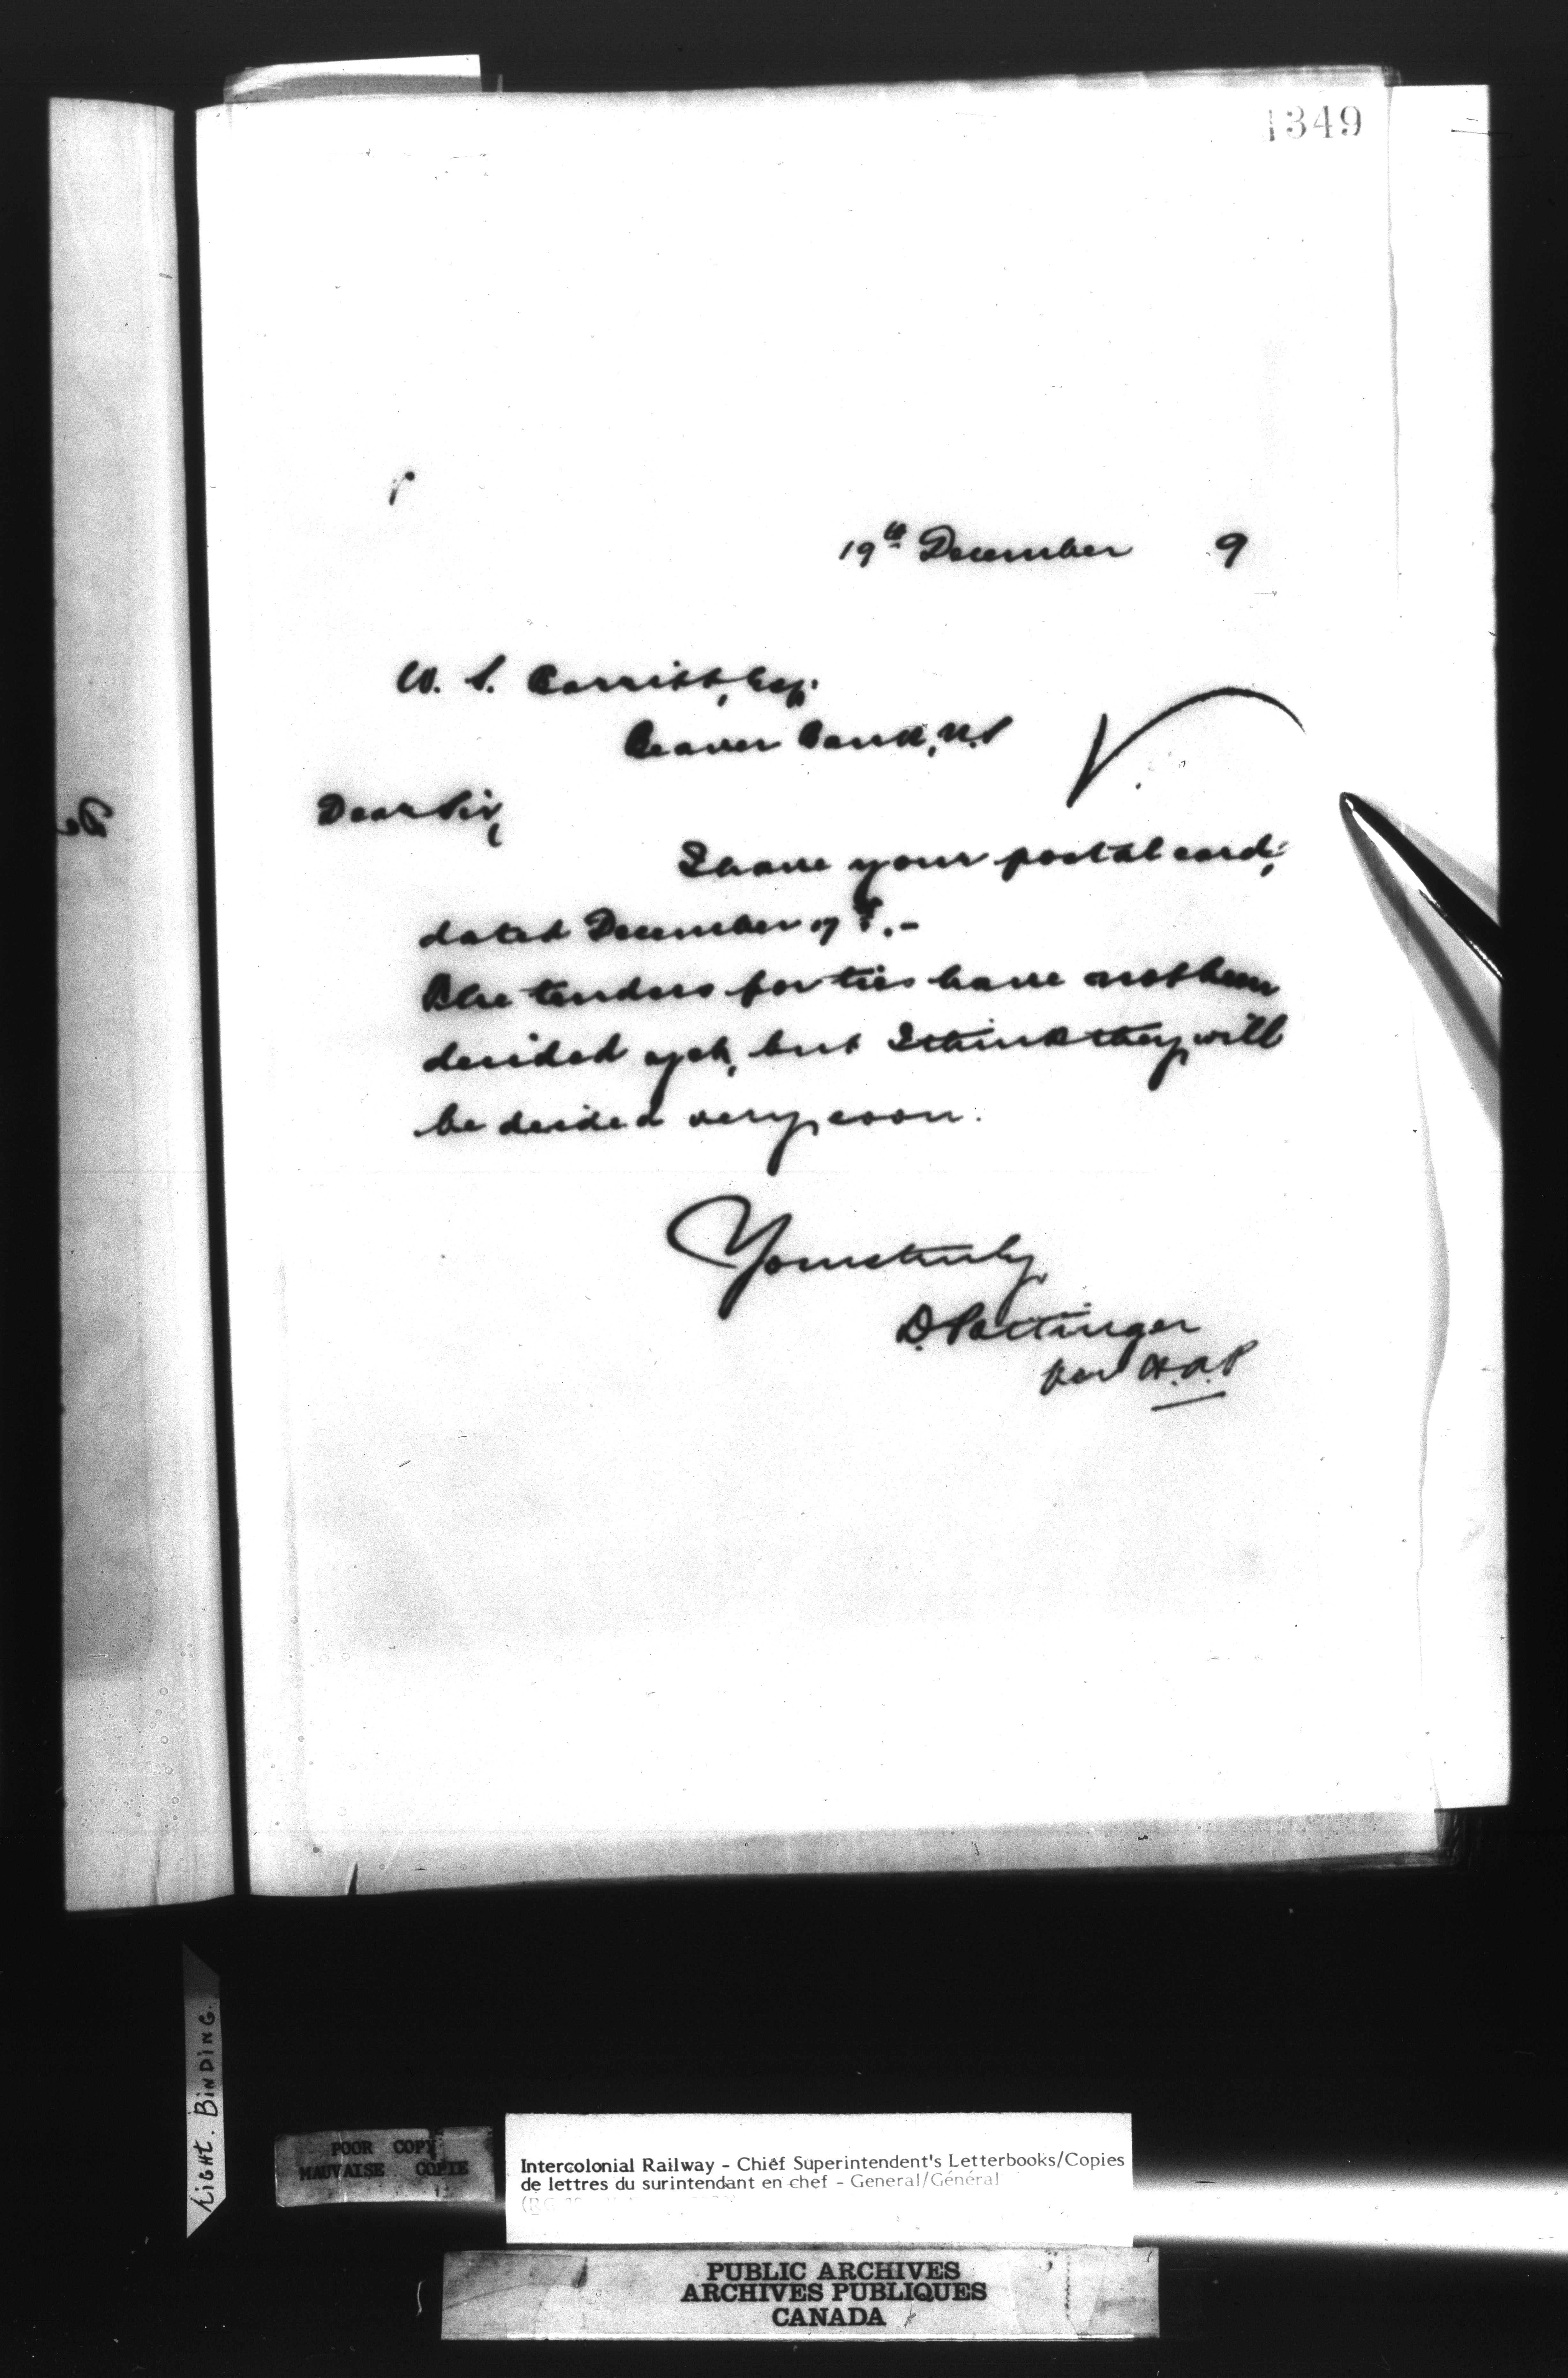 1349
19th December 9
W. S. Carritt, Esq.
Beaver Bank, N.S
Dear Sir,
I have your postal card,
dated December 17th.-
The tenders for ties have not been
decided yet, but I think they will
be decided very soon.
Yours truly,
D. Pottinger
per H.A.P
Tight. Binding.
POOR COPY
MAUVAISE COPIE
Intercolonial Railway - Chief Superintendent's Letterbooks/Copies
de lettres du surintendant en chef - General/Général
PUBLIC ARCHIVES
ARCHIVES PUBLIQUES
CANADA